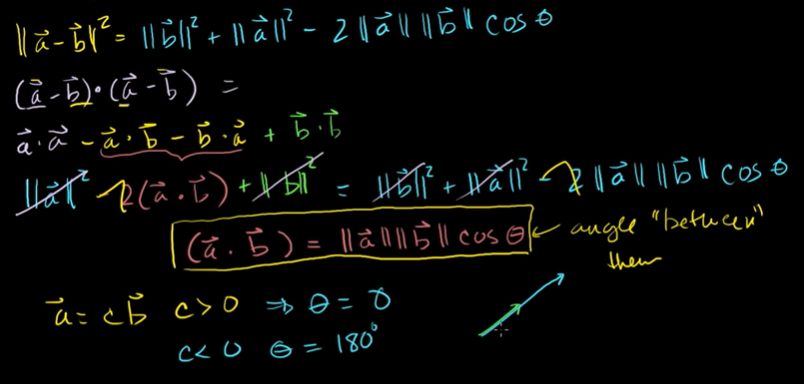 ‖a⃗ − b⃗‖² = ‖b⃗‖² + ‖a⃗‖² − 2 ‖a⃗‖ ‖b⃗‖ cos θ
(a⃗ − b⃗) · (a⃗ − b⃗) =
a⃗ · a⃗ − a⃗ · b⃗ − b⃗ · a⃗ + b⃗ · b⃗
‖a⃗‖² − 2(a⃗ · b⃗) + ‖b⃗‖² = ‖b⃗‖² + ‖a⃗‖² − 2 ‖a⃗‖ ‖b⃗‖ cos θ
(a⃗ · b⃗) = ‖a⃗‖ ‖b⃗‖ cos θ ← angle "between"
them
a⃗ = c b⃗ c > 0 ⇒ θ = 0
c < 0 θ = 180°